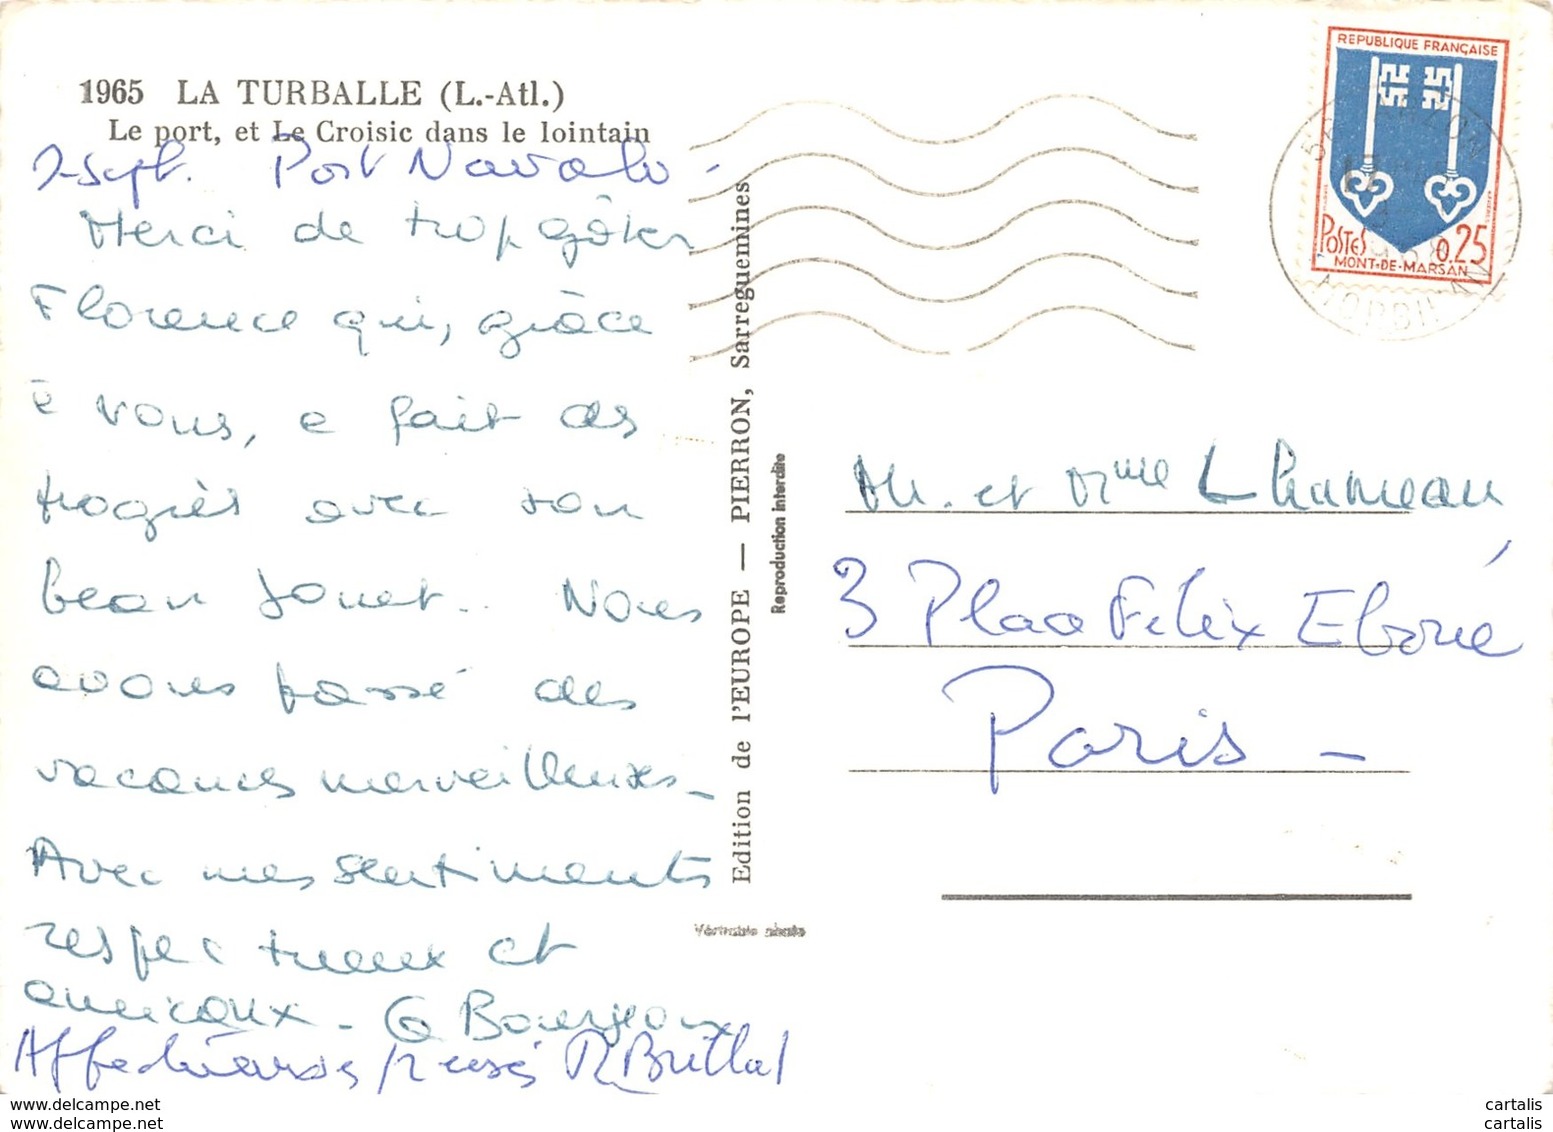 1965 LA TURBALLE (L.-Atl.)
Le port, et Le Croisic dans le lointain
2 sept. Port Navalo -
Merci de trop gâter
Florence qui, grâce
à vous, a fait des
progrès avec son
beau jouet.. Nous
avons passé des
vacances merveilleuses_
Avec mes sentiments
respectueux et
amicaux - G Bourgeoux
Affectueuses pensées R Brillat
Edition de l'EUROPE — PIERRON, Sarreguemines
Reproduction interdite
Véritable photo
REPUBLIQUE FRANÇAISE
POSTES 0,25
MONT-DE-MARSAN
MORBIHAN
Mr. et Mme Lhumeau
3 Place Félix Eboué
Paris -
www.delcampe.com
www.delcampe.net
cartalis
cartalis